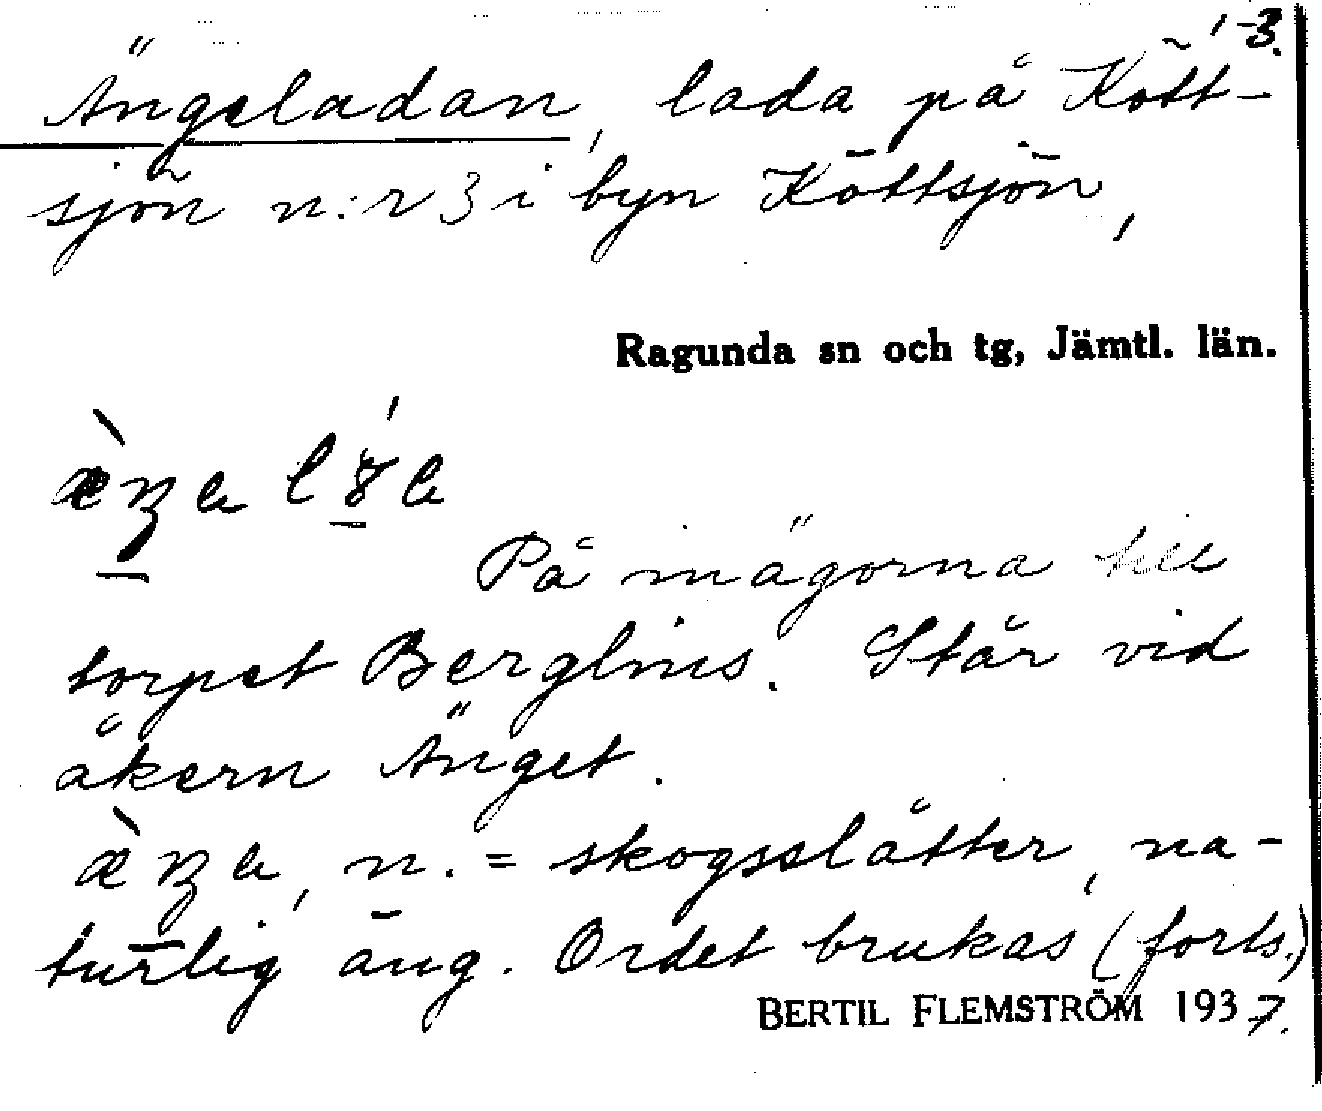 1-3.
Ängsladan, lada på Kött-
sjön n:r 3 i byn Köttsjön,
Ragunda sn och tg, Jämtl. län.
På inägorna till
torpet Berglins. Står vid
åkern Änget.
n. = skogsslåtter, na-
turlig äng. Ordet brukas (forts.)
BERTIL FLEMSTRÖM 1937.